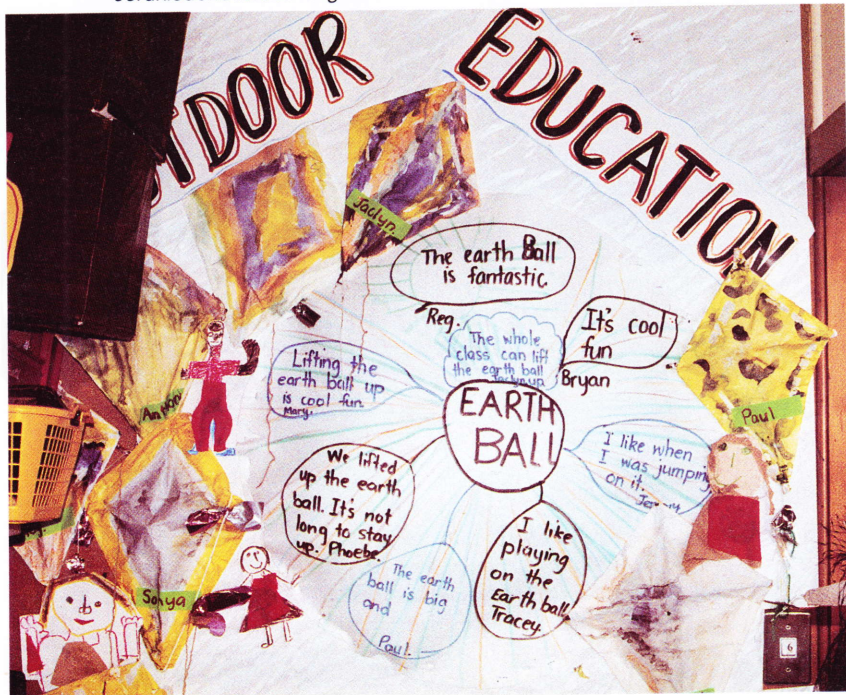 OUTDOOR EDUCATION
Jaclyn.
The earth Ball
is fantastic.
Reg.
The whole
class can lift
the earth ball
up
It's cool
fun
Bryan
Lifting the
earth ball up
is cool fun
Mary.
EARTH
BALL
Paul
I like when
I was jumping
on it.
We lifted
up the earth
ball. It's not
long to stay
up. Phoebe
I like
playing
on the
Earth ball
Tracey.
The earth
ball is big
and
Paul.
Sonya
6